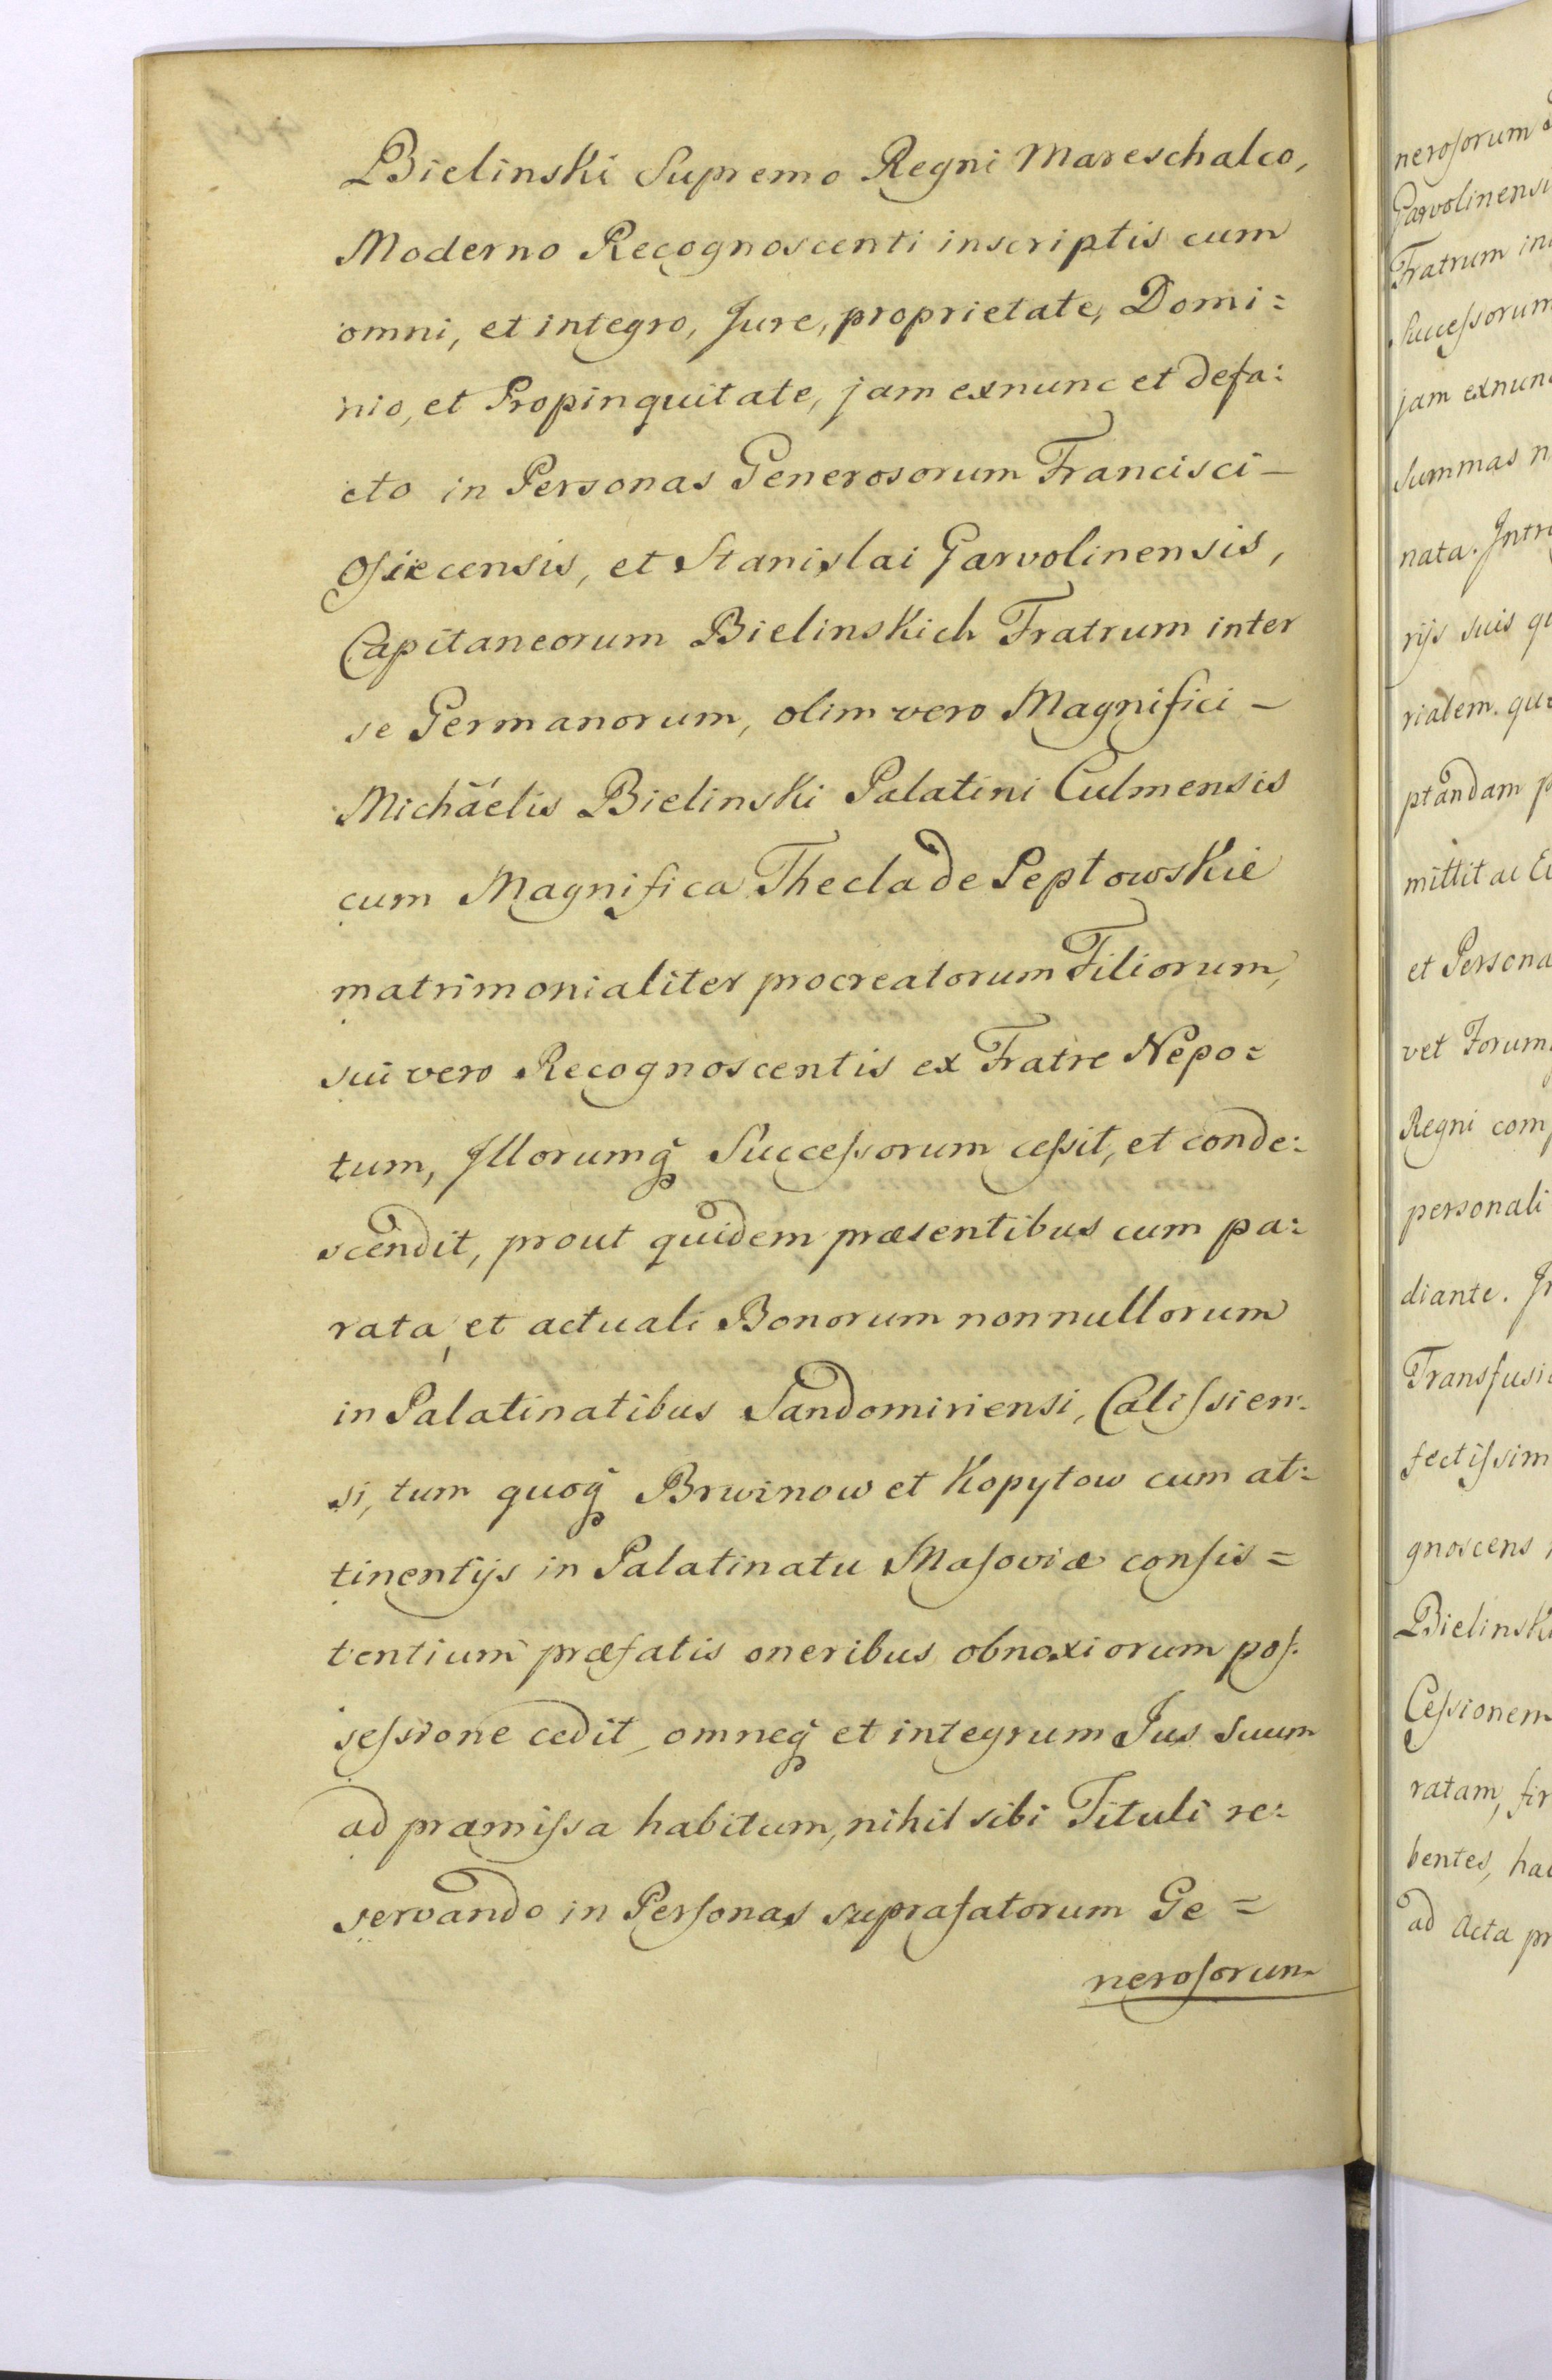 Bielinski Supremo Regni Mareschalco,
Moderno Recognoscenti inscriptis cum
omni, et integro, Jure, proprietate, Domi=
nio, et Propinquitate, jam exnunc et defa:
cto in Personas Generosorum Francisci —
Osiecensis, et Stanislai Garvolinensis,
Capitaneorum Bielinskich Fratrum inter
se Germanorum, olim vero Magnifici —
Michaëlis Bielinski Palatini Culmensis
cum Magnifica Thecla de Peptowskie
matrimonialiter procreatorum Filiorum,
sui vero Recognoscentis ex Fratre Nepo=
tum, Illorumq̃ Succeſsorum ceſsit, et conde:
scendit, prout quidem præsentibus cum pa:
rata, et actuali Bonorum nonnullorum
in Palatinatibus Sandomiriensi, Caliſsien:
si, tum quoq̃ Brwinow et Kopytow cum at:
tinentijs in Palatinatu Maſoviæ conſis=
tentium præfatis oneribus obnoxiorum poſ:
seſsione cedit, omneq̃ et integrum Jus suum
ad præmiſsa habitum, nihil sibi Tituli re:
servando in Perſonas suprafatorum Ge=
neroſorum
neroſorum
Garvolinensi
Fratrum in
Succeſsorum
jam exnunc
Summas n
nata. Intr
rijs suis q
rialem. qu
ptandam p
mittit ac E
et Persona
vet Forum
Regni com
personali
diante. I
Transfusi
fectiſsim
gnoscens
Bielinsk
Ceſsionem
ratam, fir
bentes, ha
ad Acta pr